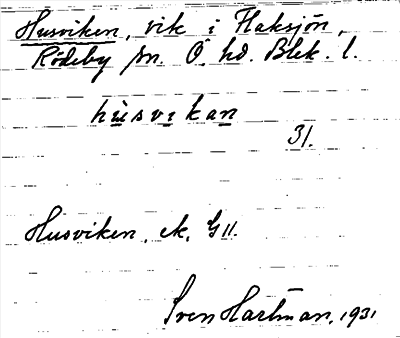 Husviken, vik i Flaksjön,
Rödeby sn. Ö. hd. Blek. l.
husvikan
31.
Husviken, ek. G 11.
Sven Hartman, 1931